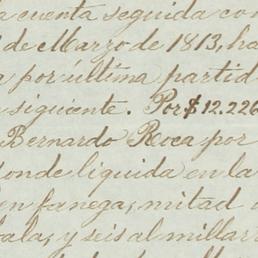 la cuenta seguida con
de Marzo de 1813, ha
a por última partid
siguiente. Por $12.226
Bernardo Roca por
donde liquida en la
en fanega, mitad
bala, y seis al millar